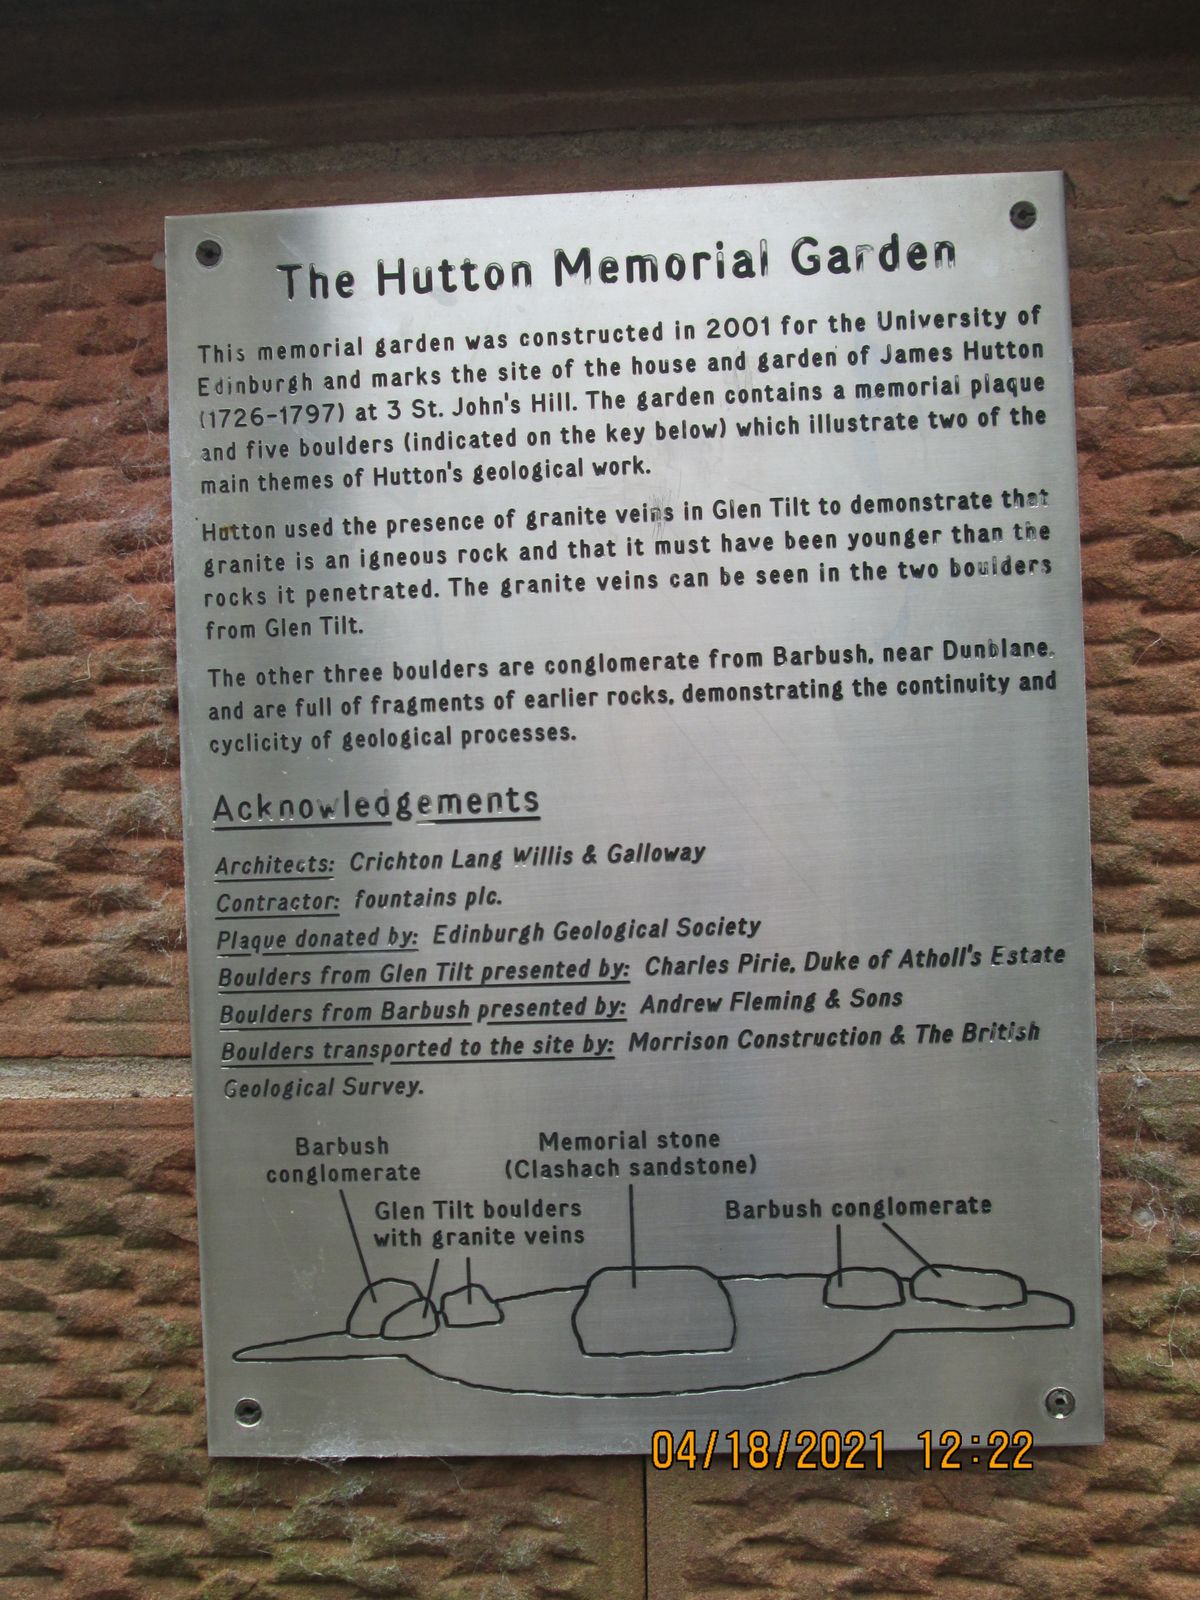 The Hutton Memorial Garden
This memorial garden was constructed in 2001 for the University of
Edinburgh and marks the site of the house and garden of James Hutton
(1726-1797) at 3 St. John's Hill. The garden contains a memorial plaque
and five boulders (indicated on the key below) which illustrate two of the
main themes of Hutton's geological work.
Hutton used the presence of granite veins in Glen Tilt to demonstrate that
granite is an igneous rock and that it must have been younger than the
rocks it penetrated. The granite veins can be seen in the two boulders
from Glen Tilt.
The other three boulders are conglomerate from Barbush, near Dunblane,
and are full of fragments of earlier rocks, demonstrating the continuity and
cyclicity of geological processes.
Acknowledgements
Architects: Crichton Lang Willis & Galloway
Contractor: fountains plc.
Plaque donated by: Edinburgh Geological Society
Boulders from Glen Tilt presented by: Charles Pirie, Duke of Atholl's Estate
Boulders from Barbush presented by: Andrew Fleming & Sons
Boulders transported to the site by: Morrison Construction & The British
Geological Survey.
Barbush
conglomerate
Glen Tilt boulders
with granite veins
Memorial stone
(Clashach sandstone)
Barbush conglomerate
04/18/2021 12:22